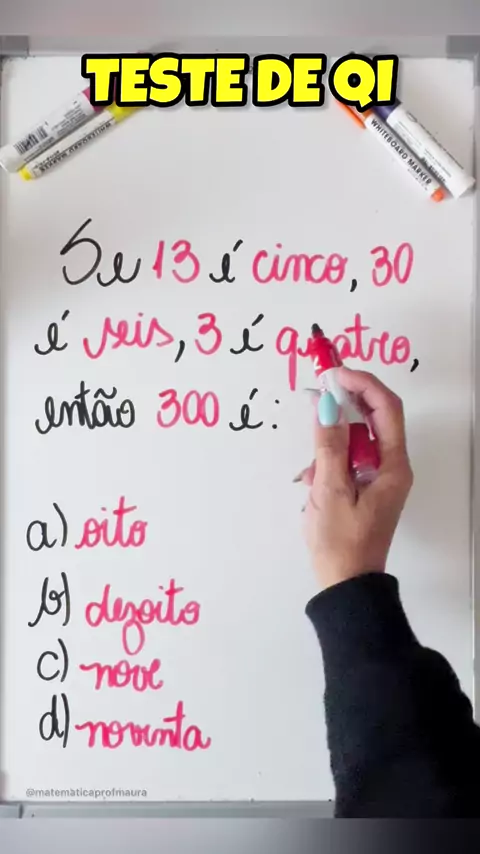 TESTE DE QI
WHITEBOARD MARKER
Se 13 é cinco, 30
é seis, 3 é quatro,
então 300 é:
a) oito
b) dezoito
c) nove
d) noventa
@matematicaprofmaura